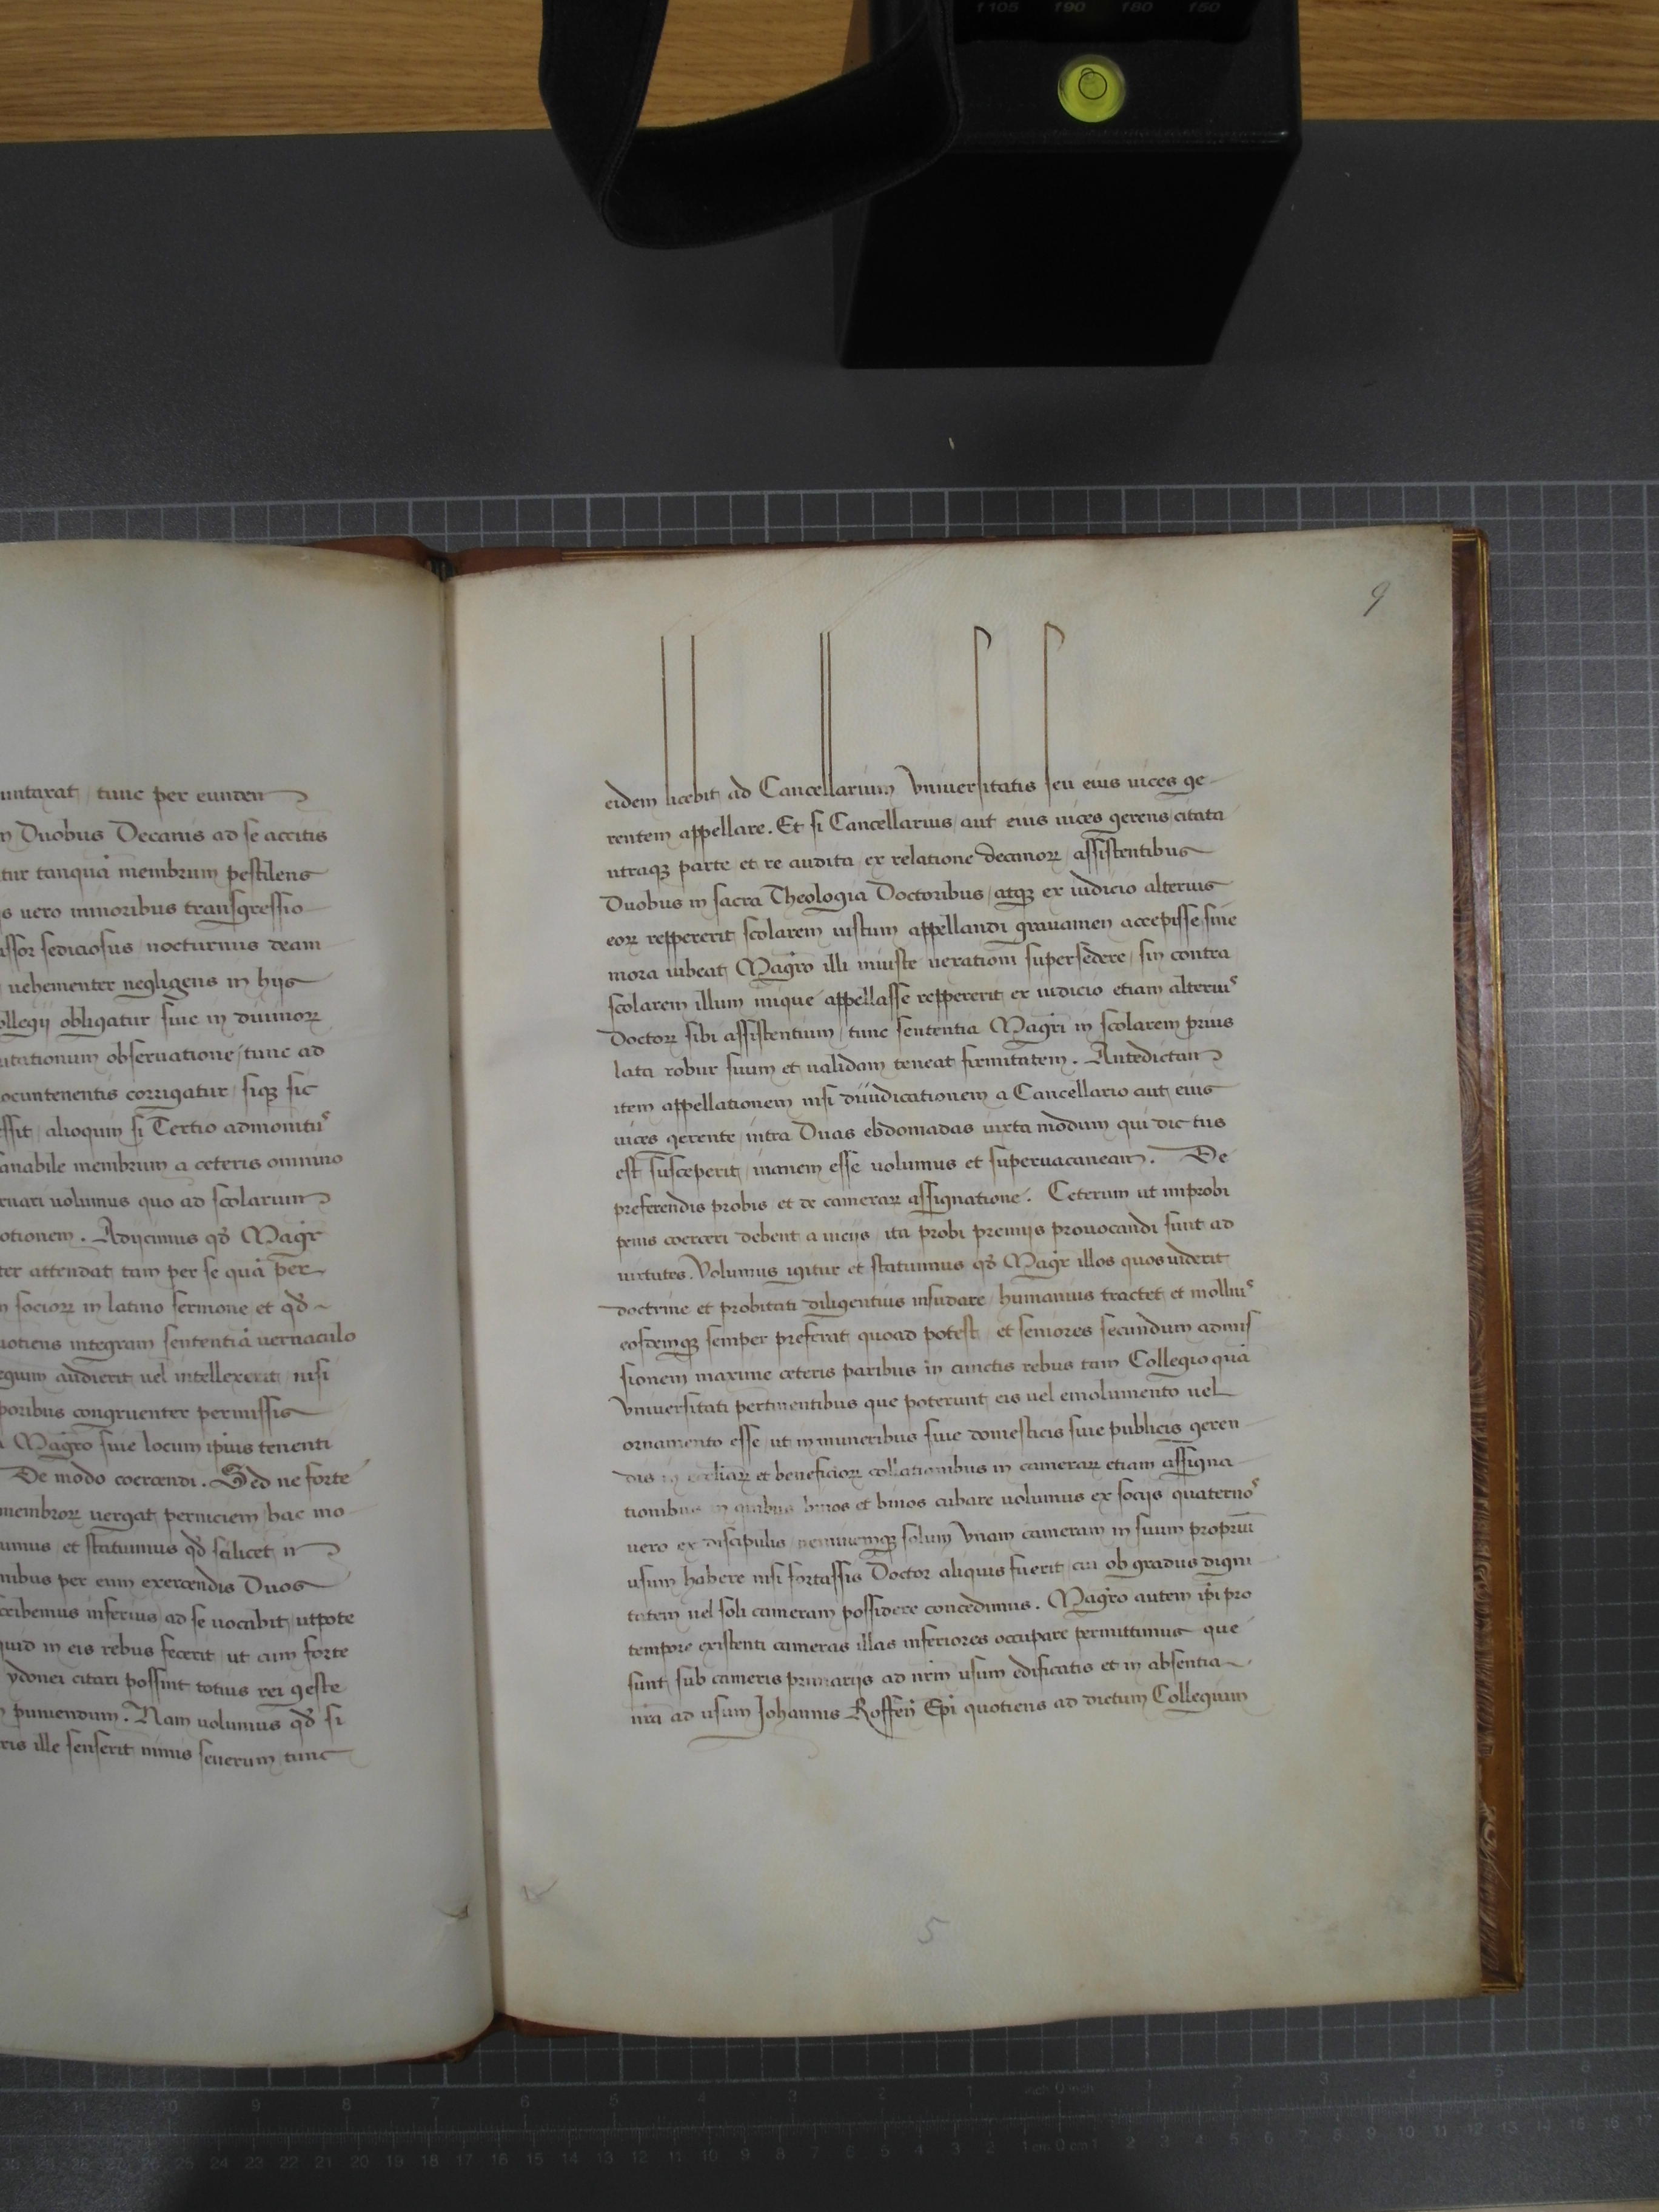 f105 f90 f80 f50
untaxat / tunc per eunden
m Duobus Decanis ad se accitis
tur tanquā membrum pestilens
s uero minoribus transgressio
assor sediciosus / nocturnus deam
uehementer negligens in hijs
ollegij obligatur / siue in diuinoꝝ
utationum obseruatione / tunc ad
ocumtenentis corrigatur / siqꝫ sic
essit / alioquin si Tertio admonitus
anabile membrum a ceteris omnino
ruari uolumus quo ad scolarium
otionem . Adijcimus qđ Magr̄
ter attendat tam per se quā per
m socioꝝ in latino sermone et qđ
uotiens integram sententiā uernaculo
equium audierit uel intellexerit nisi
poribus congruenter permissis
Magr̄o siue locum ip̄ius tenenti
De modo coercendi . Sed ne forte
membroꝝ uergat perniciem hac mo
umus / et statuimus qđ scilicet in
nibus per eum exercendis Duos
cribemus inferius / ad se uocabit / utpote
quid in eis rebus fecerit / ut cum forte
ydonei citari possint totius rei geste
puniendum . Nam uolumus qđ si
ris ille senserit nimis seuerum tunc
9
eidem licebit ad Cancellarium Vniuersitatis seu eius uices ge
rentem appellare . Et si Cancellarius / aut eius uices gerens / citata
utraqꝫ parte et re audita / ex relatione decanoꝝ / assistentibus
Duobus in sacra Theologia Doctoribus / atqꝫ ex iudicio alterius
eoꝝ reppererit scolarem iustum appellandi grauamen accepisse / sine
mora iubeat Magr̄o illi iniuste uexationi supersedere / sin contra
scolarem illum inique appellasse reppererit ex iudicio etiam alterius
Doctoꝝ sibi assistentium / tunc sententia Magr̄i in scolarem prius
lata robur suum et ualidam teneat firmitatem . Antedictam
item appellationem nisi diiudicationem a Cancellario aut eius
uices gerente / intra Duas ebdomadas iuxta modum qui dictus
est susceperit / inanem esse uolumus et superuacaneam . De
preferendis probis et de cameraꝝ assignatione . Ceterum ut improbi
penis coerceri debent a uicijs / ita probi premijs prouocandi sunt ad
uirtutes . Volumus igitur et statuimus qđ Magr̄ illos quos uiderit
doctrine et probitati diligentius insudare / humanius tractet et mollius
eosdemqꝫ semper preferat quoad potest / et seniores secundum admis
sionem maxime ceteris paribus in cunctis rebus tam Collegio quā
Vniuersitati pertinentibus que poterunt eis uel emolumento uel
ornamento esse / ut in muneribus siue domesticis siue publicis geren
dis et beneficioꝝ collationibus in cameraꝝ etiam assigna
tionibus in quibus binos et binos cubare uolumus ex socijs / quaternos
uero ex discipulis / neminemqꝫ solum Vnam cameram in suum propriū
usum habere nisi fortassis Doctor aliquis fuerit / cui ob gradus digni
tatem uel soli cameram possidere concedimus . Magr̄o autem ip̄i pro
tempore existenti cameras illas inferiores occupare permittimus que
sunt sub cameris primarijs ad nr̄m usum edificatis et in absentia
nr̄a ad usum Johannis Roffen̄ Ep̄i quotiens ad dictum Collegium
5